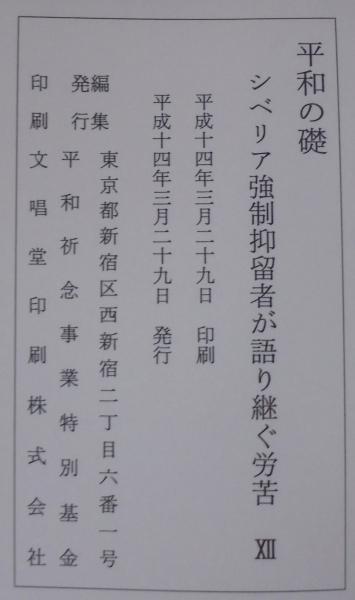 平和の礎
シベリア強制抑留者が語り継ぐ労苦 Ⅻ
平成十四年三月二十九日 印刷
平成十四年三月二十九日 発行
編集 東京都新宿区西新宿二丁目六番一号
発行 平和祈念事業特別基金
印刷 文唱堂印刷株式会社